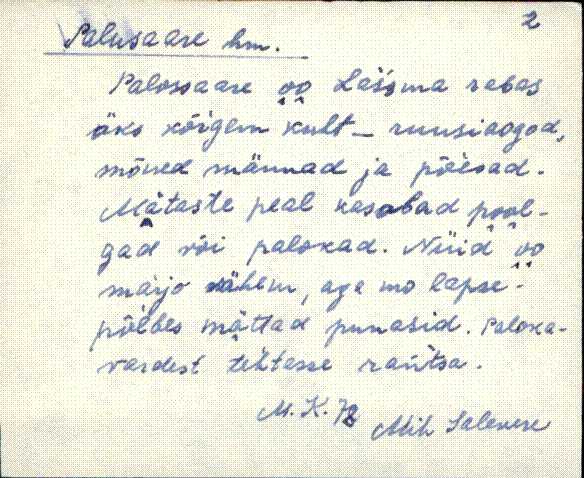 2
Palusaare hm.
Palossaare oo Lassma rabas
üks kõigem kult – ruusiaogod,
mõned männad ja põesad.
Mätaste peal kasabad pool-
gad või palokad. Nüid oo
märjo vähem, aga mo lapse-
põlbes mättad punasid. Paloka-
vardest tehtasse raiitsa.
M. K. 78
Mih Salevere